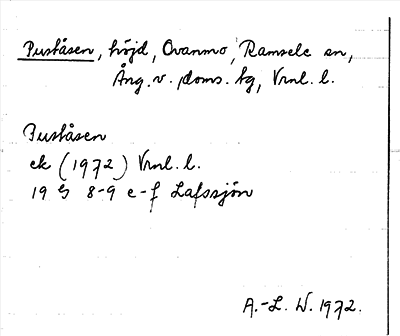 Puståsen, höjd, Ovanmo, Ramsele sn,
Ång. v. doms. tg, Vrnl. l.
Puståsen
ek (1972) Vrnl. l.
19 G 8-9 e-f Lafssjön
A.-L. W. 1972.